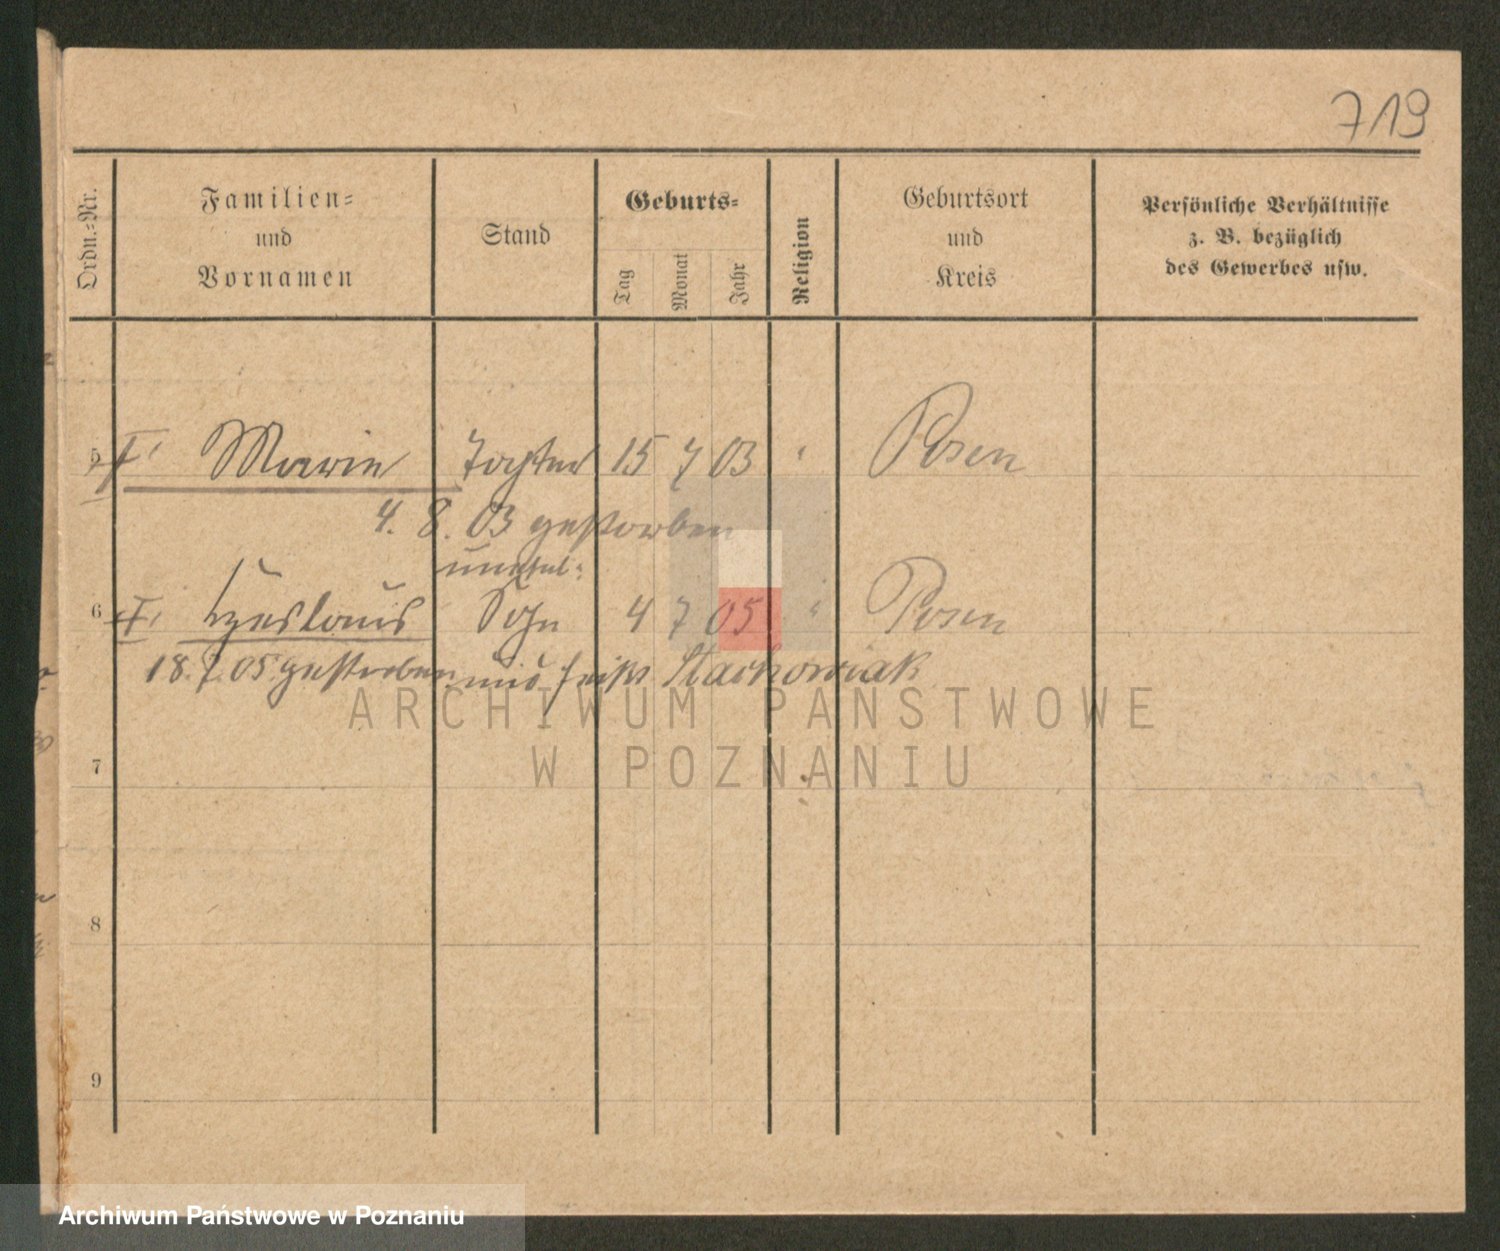 719
Ordn.-Nr.
Familien-
und
Vornamen
Stand
Geburts-
Tag
Monat
Jahr
Religion
Geburtsort
und
Kreis
Persönliche Verhältnisse
z. B. bezüglich
des Gewerbes usw.
5 Marie Tochter 15 7 03 " Posen
4. 8. 03 gestorben
unehel:
6 Czeslaus Sohn 4 7 05 " Posen
18. 7. 05 gestorben und heißt Stachowiak
ARCHIWUM PAŃSTWOWE
W POZNANIU
7
8
9
Archiwum Państwowe w Poznaniu